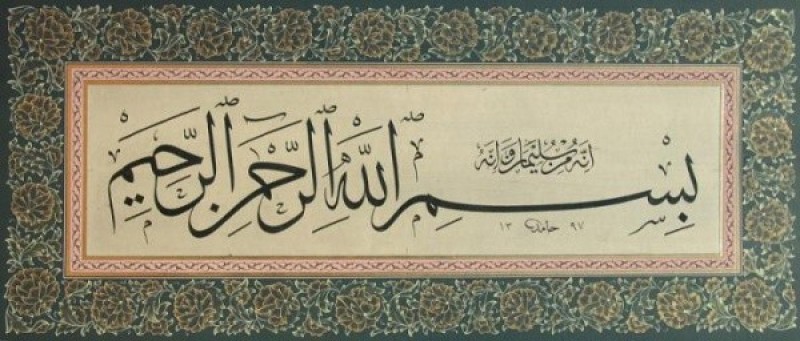 انه من سليمان وانه
بِسْمِ اللّٰهِ الرَّحْمٰنِ الرَّحِيمِ
١٣ حامد ٩٧